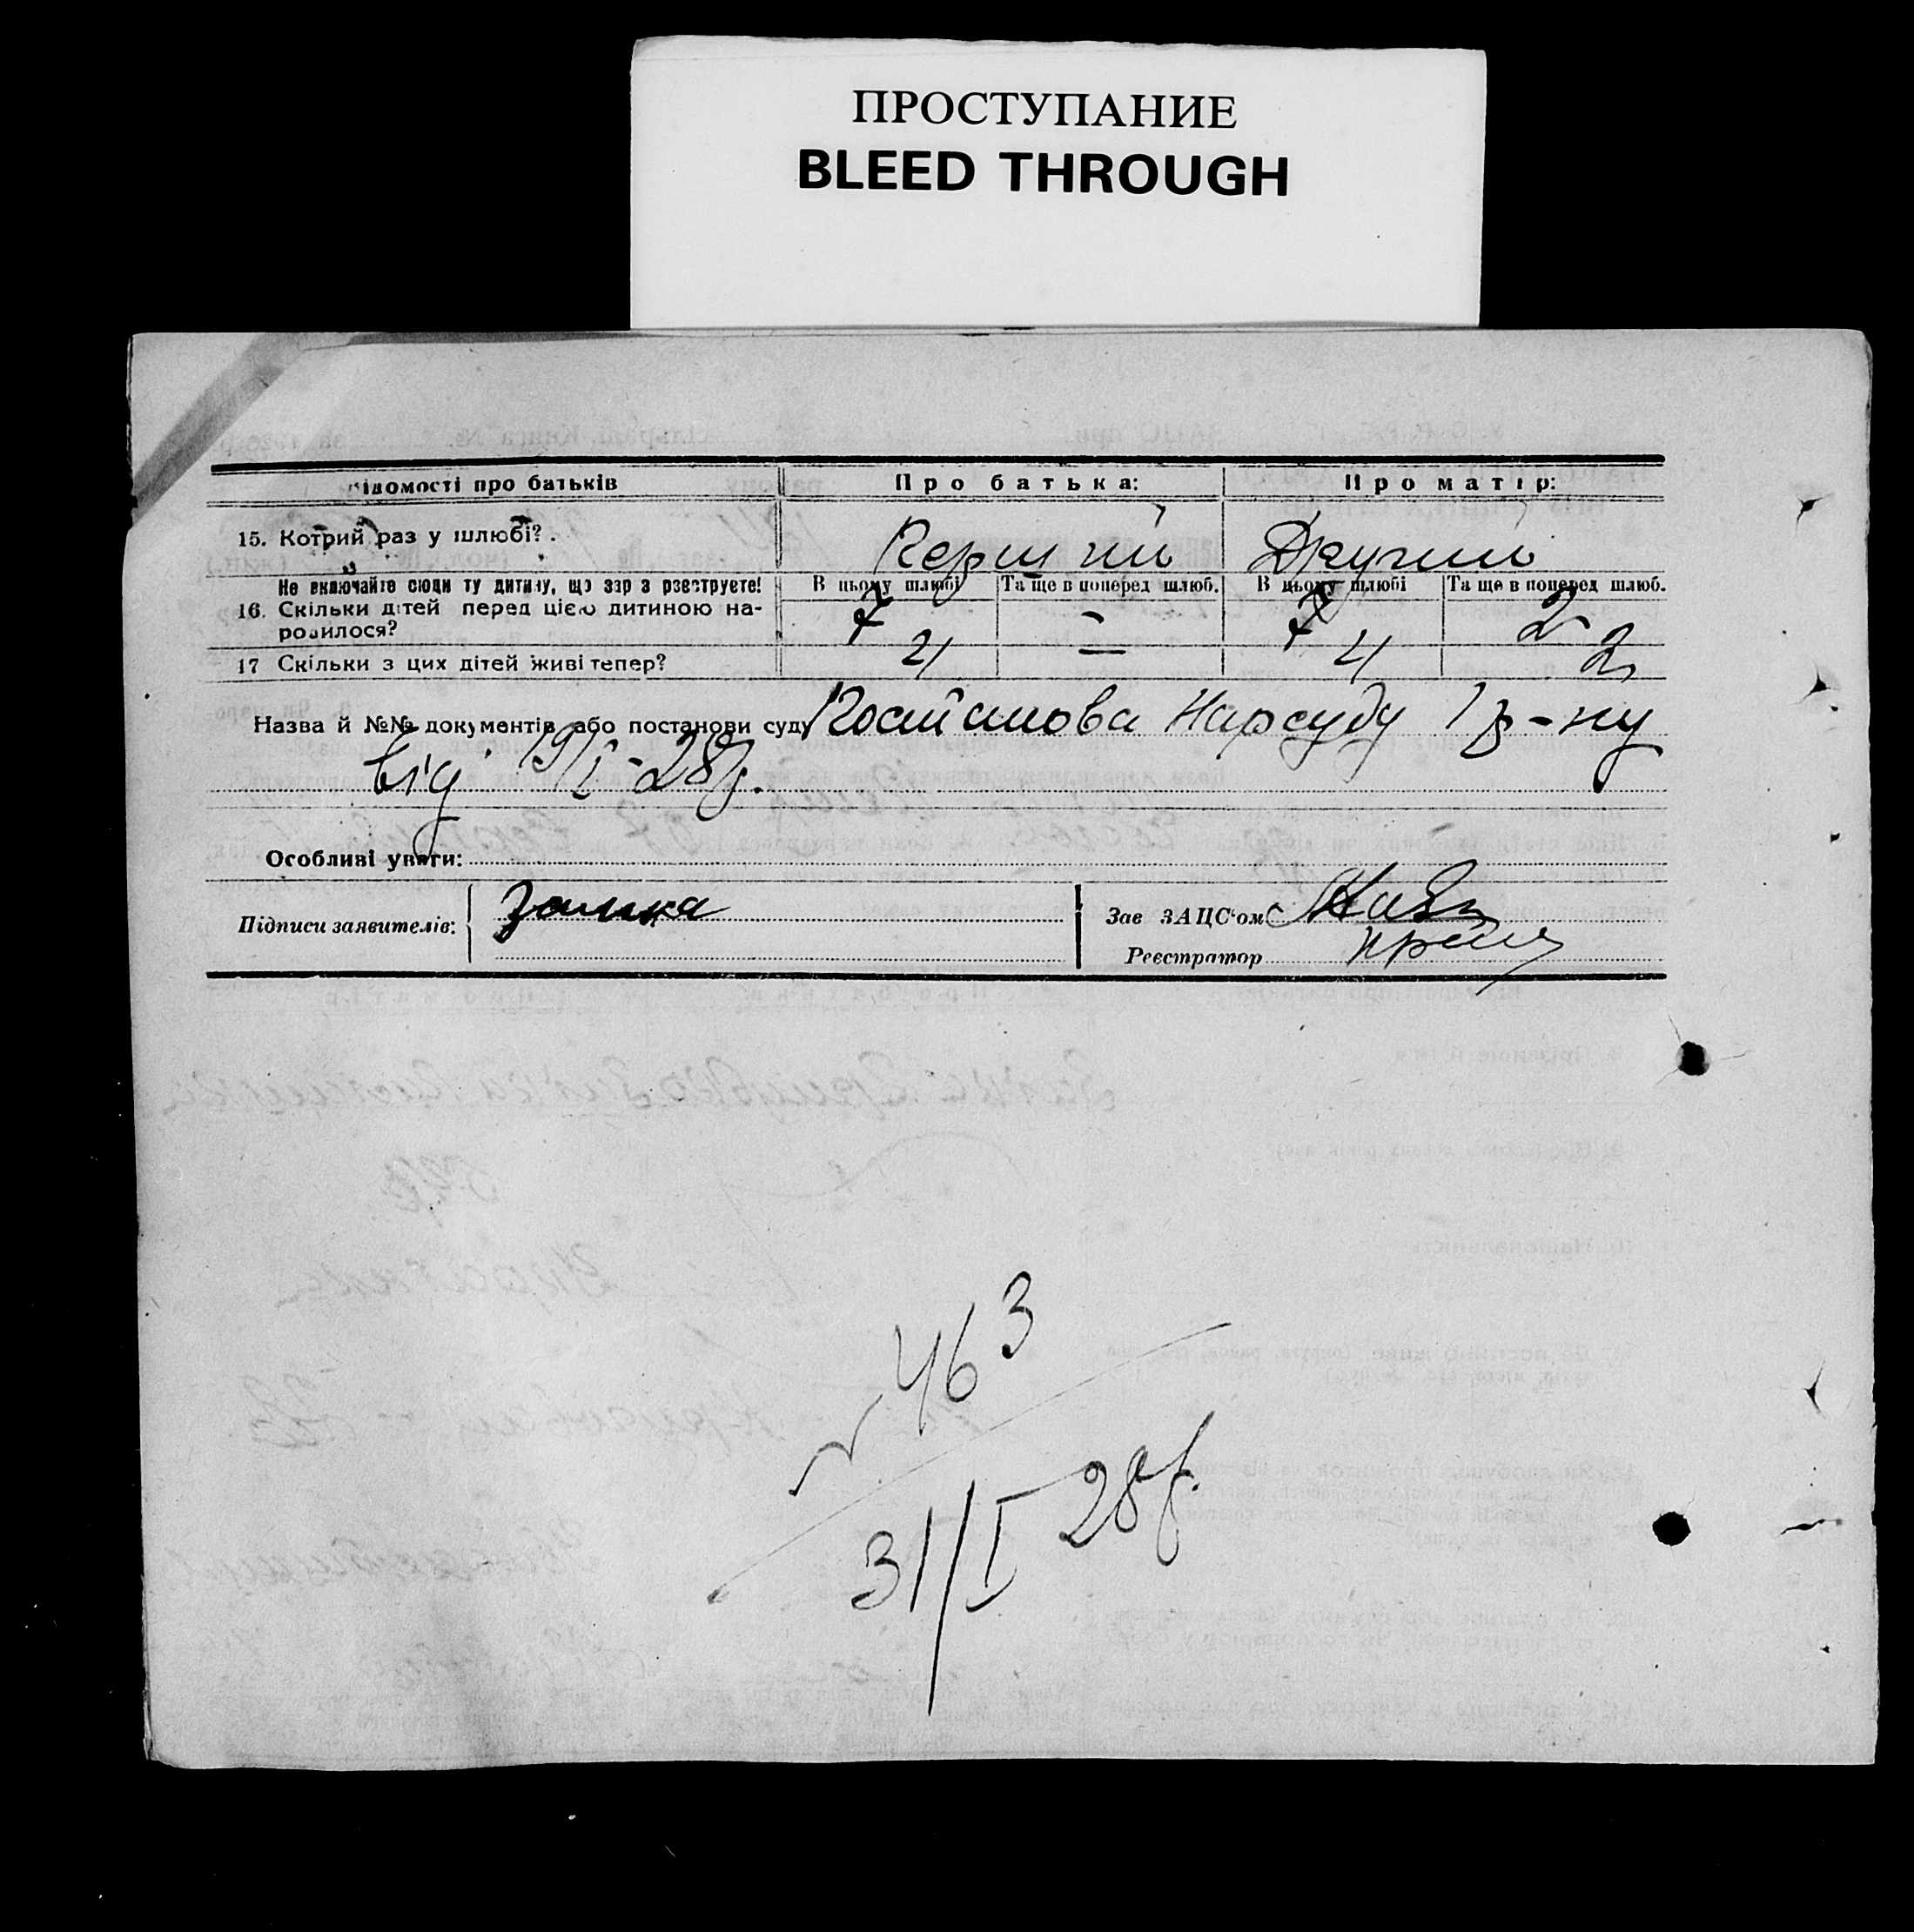 ПРОСТУПАНИЕ
BLEED THROUGH
відомості про батьків Про батька: Про матір:
15. Котрий раз у шлюбі? Перший Другий
Не включайте сюди ту дитину, що зараз реєструєте! В цьому шлюбі Та ще в поперед шлюб. В цьому шлюбі Та ще в поперед шлюб.
16. Скільки дітей перед цією дитиною на-
родилося? 7 - 7 2
17 Скільки з цих дітей живі тепер? 4 — 4 2
Назва й №№ документів або постанови суду Постанова Нарсуду 1 р-ну
від 19/I-28р.
Особливі уваги:
Підписи заявителів: Заика
Зав ЗАЦС'ом
Реєстратор
№ 463
31/I 28р.